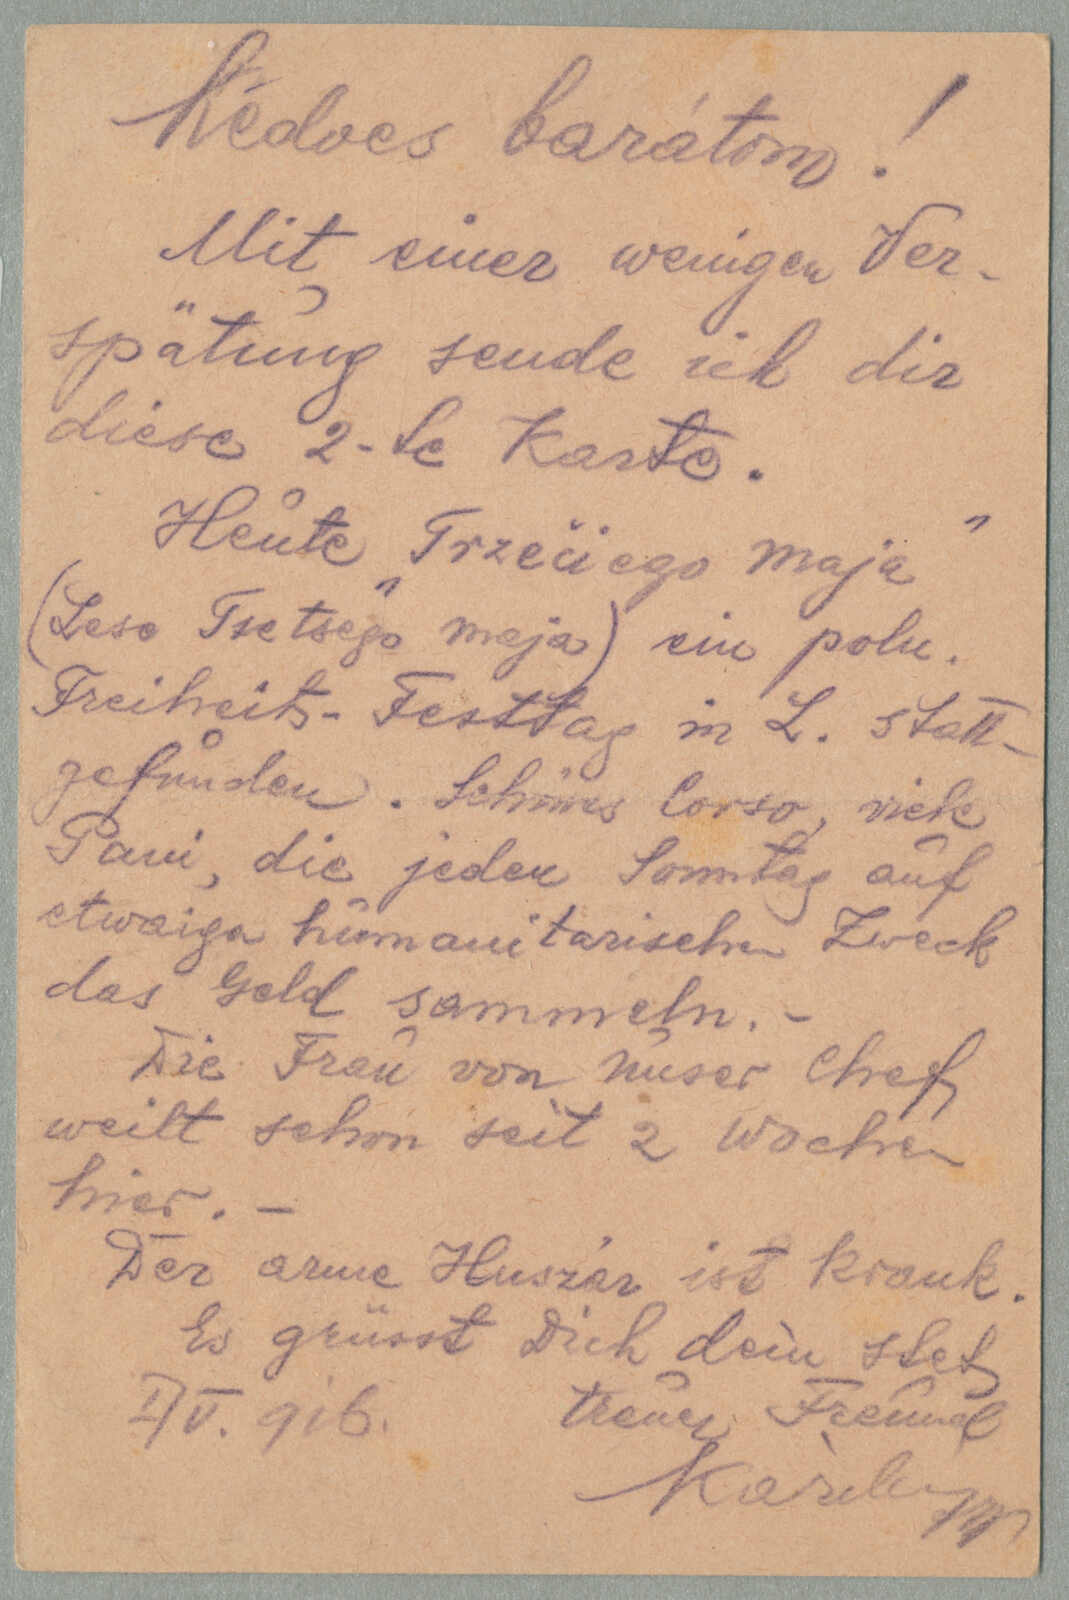 Kedves barátom!
Mit einer wenigen Ver-
spätung sende ich dir
diese 2-te Karte.
Heute "Trzeciego maja"
(Lese "Tsetsego maja) ein poln.
Freiheits-Festtag in L. statt-
gefunden. Schönes Corso, viele
Pani, die jeden Sonntag auf
etwaiga humanitarischen Zweck
das Geld sammeln.-
Die Frau von unser Chef
weilt schon seit 2 Wochen
hier.-
Der arme Huszár ist krank.
Es grüsst Dich dein stet
treuer Freund
V. 916.